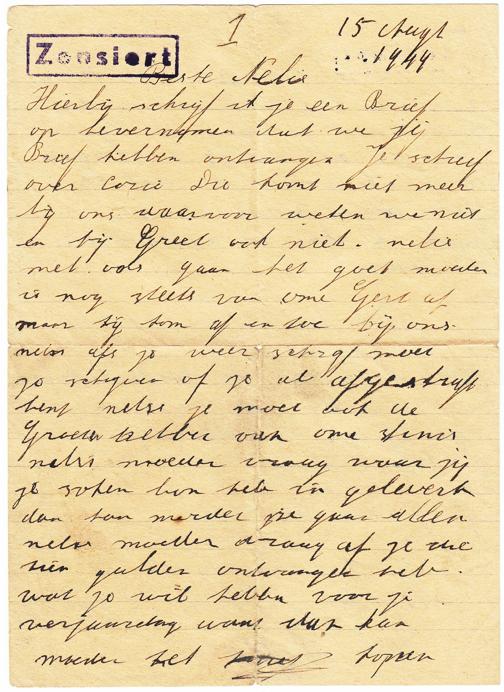 1
15 Augt
1944
Zensiert
Beste Nelie
Hierbij schrijf ik je een Brief
op te vernamen dat we jij
Brief hebben ontvangen Je schrijf
over Corie Die komt niet meer
bij ons waarvoor weten we niet
en bij Greet ook niet. nelie
met ons gaan het goet moeder
is nog steets van ome Gert af
maar hij kom af en toe bij ons.
nelie als je weer schrijf moet
je schrijven of je al afgestraft
bent nelie je moet ook de
Groeten hebben van ome
nelie moeder vraag waar jij
je bon heb in gelevert
dan kan moeder ze gaan allen
nelie moeder vraag of je die
tien gulden ontvangen heb.
wat je wil hebben voor je
verjaardag want dat kan
moeder het kopen